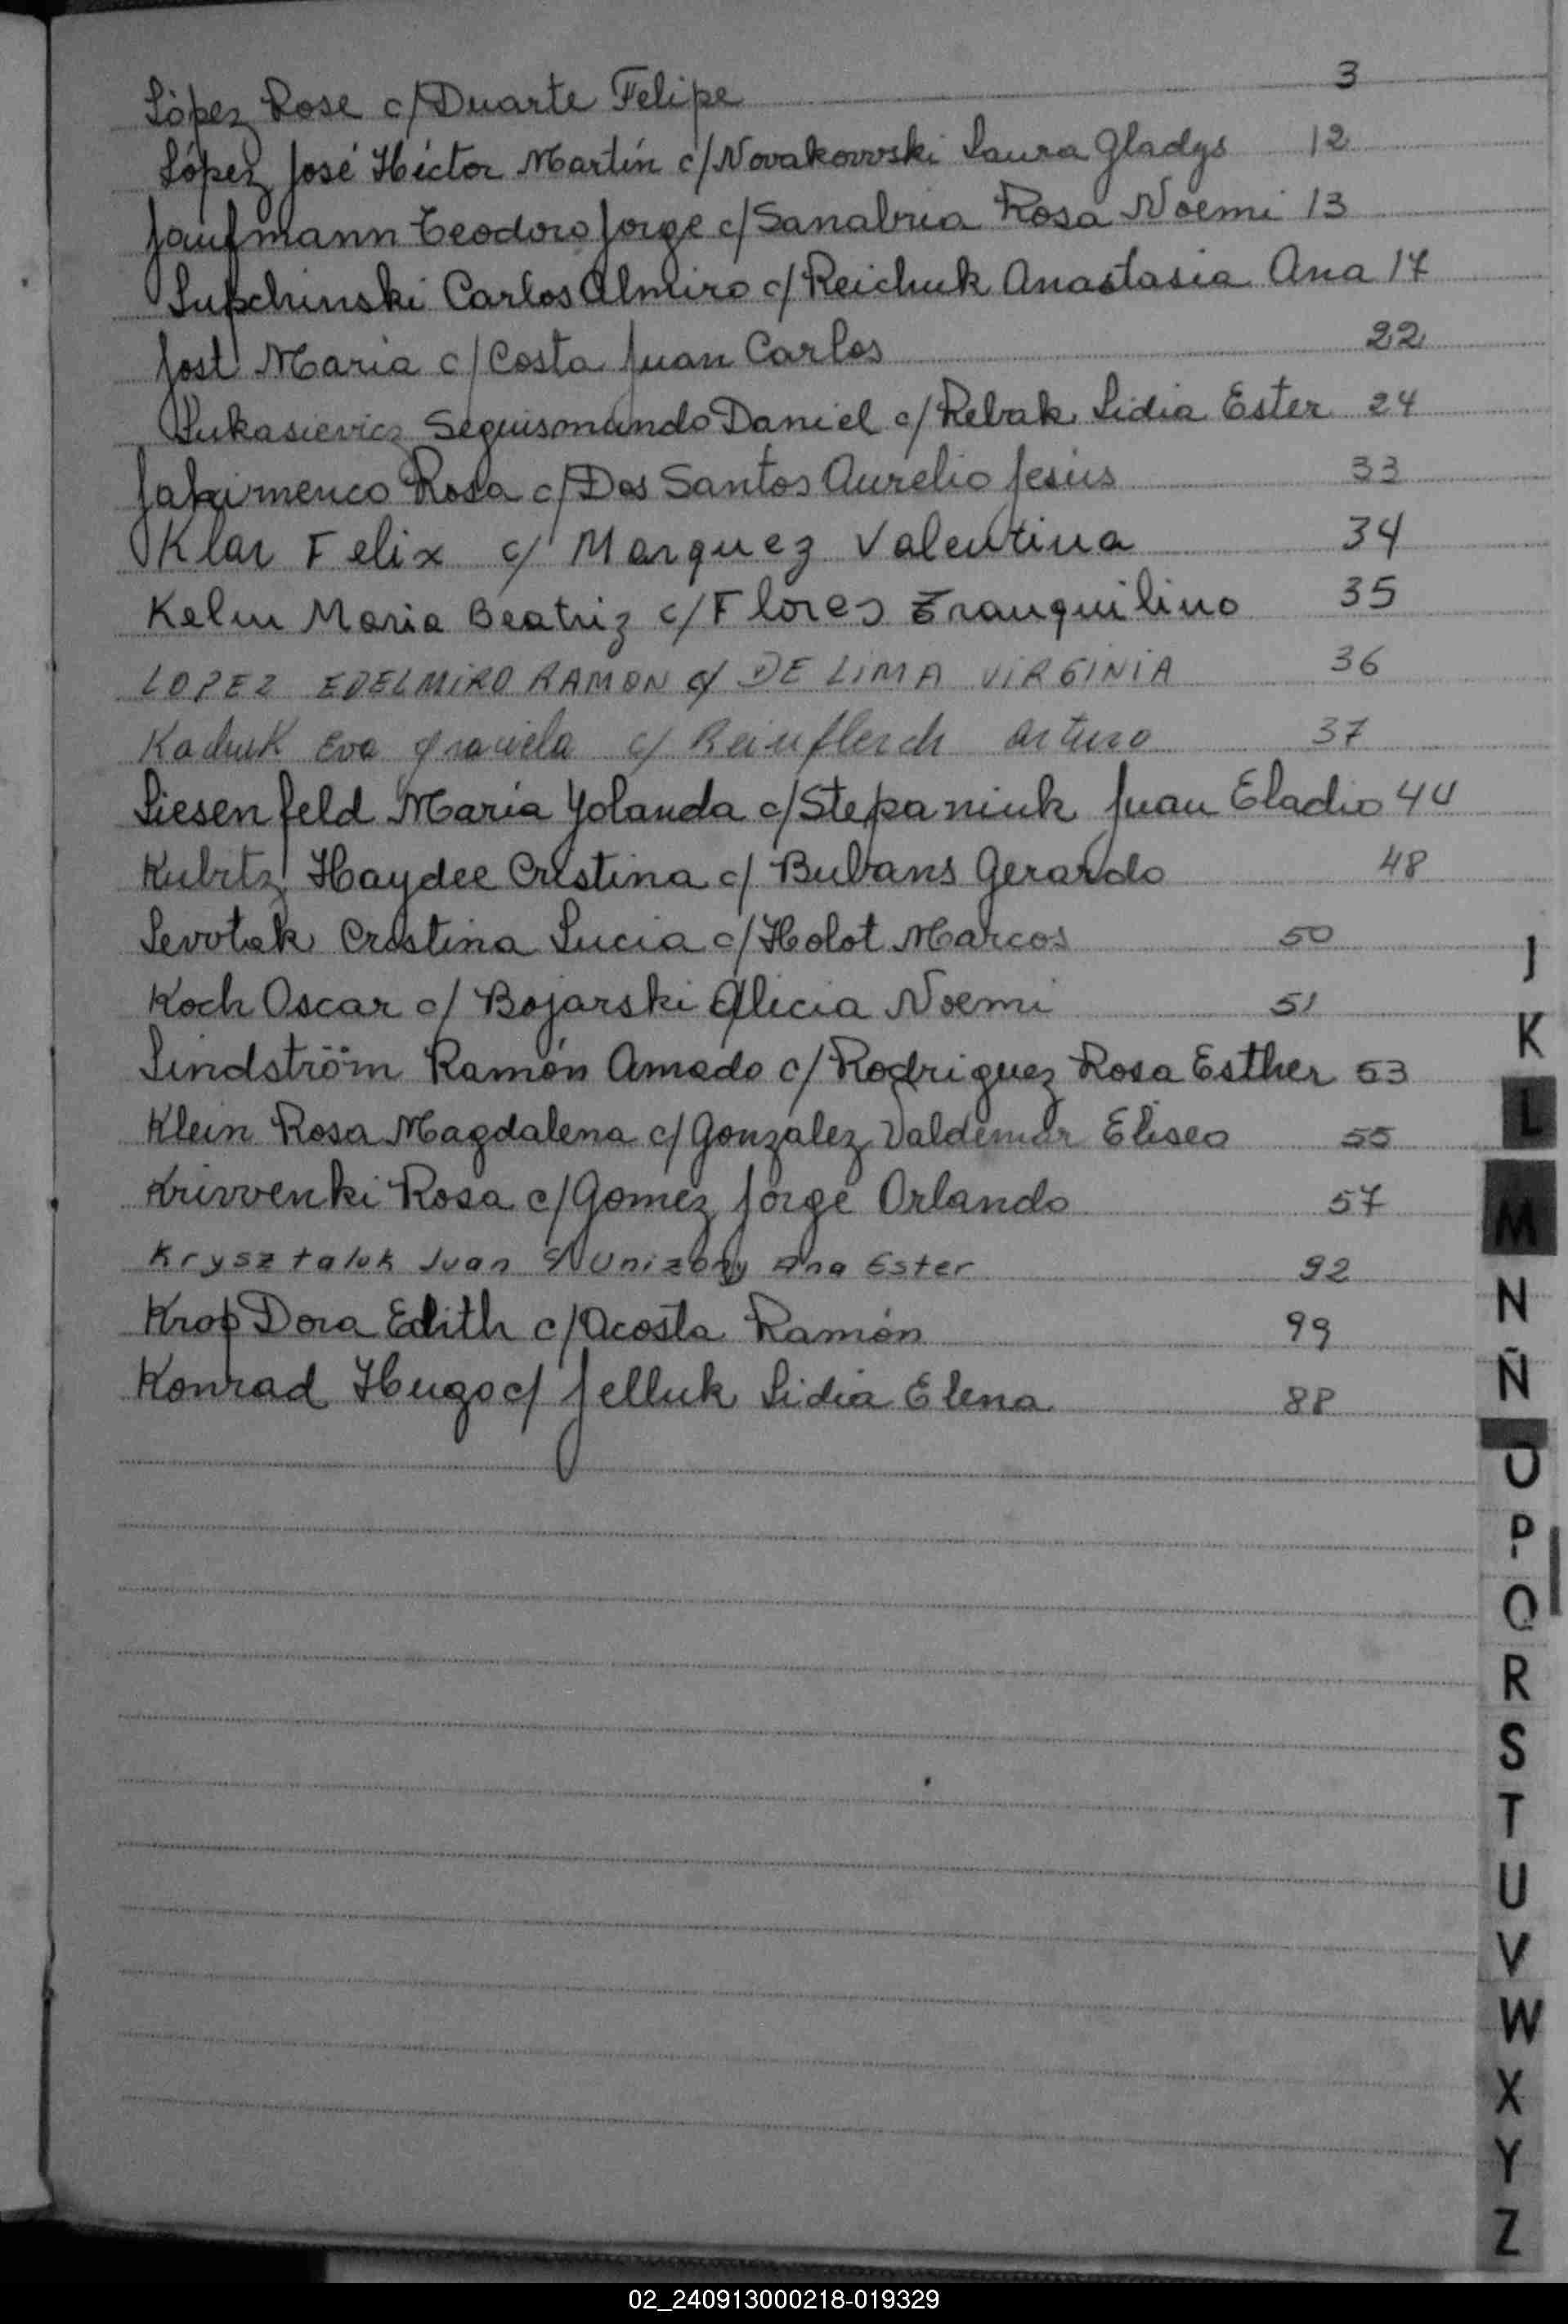 López Rose c/ Duarte Felipe 3
López José Héctor Martín c/ Novakowski Laura Gladys 12
Jaufmann Teodoro Jorge c/ Sanabria Rosa Noemi 13
Lupchinski Carlos Almiro c/ Reichuk Anastasia Ana 17
Jost Maria c/ Costa Juan Carlos 22
Lukasievicz Seguismundo Daniel c/ Rebak Lidia Ester 24
Jakimenco Rosa c/ Dos Santos Aurelio Jesús 33
Klar Felix c/ Marquez Valentina 34
Kelm Maria Beatriz c/ Flores Tranquilino 35
LOPEZ EDELMIRO RAMON c/ DE LIMA VIRGINIA 36
Kaduk Eva Graciela c/ Arturo 37
Liesenfeld María Yolanda c/ Stepaniuk Juan Eladio 44
Kubitz Haydee Cristina c/ Bubans Gerardo 48
Levotak Cristina Lucia c/ Holot Marcos 50
Koch Oscar c/ Bojarski Alicia Noemi 51
Lindström Ramón Amado c/ Rodriguez Rosa Esther 53
Klein Rosa Magdalena c/ González Valdemar Eliseo 55
Krivvenki Rosa c/ Gomez Jorge Orlando 57
Krysztaluk Juan c/ Ana Ester 92
Krop Dora Edith c/ Acosta Ramón 99
Konrad Hugo c/ Jelluk Lidia Elena 88
J
K
L
M
N
Ñ
O
P
Q
R
S
T
U
V
W
X
Y
Z
02_240913000218-019329